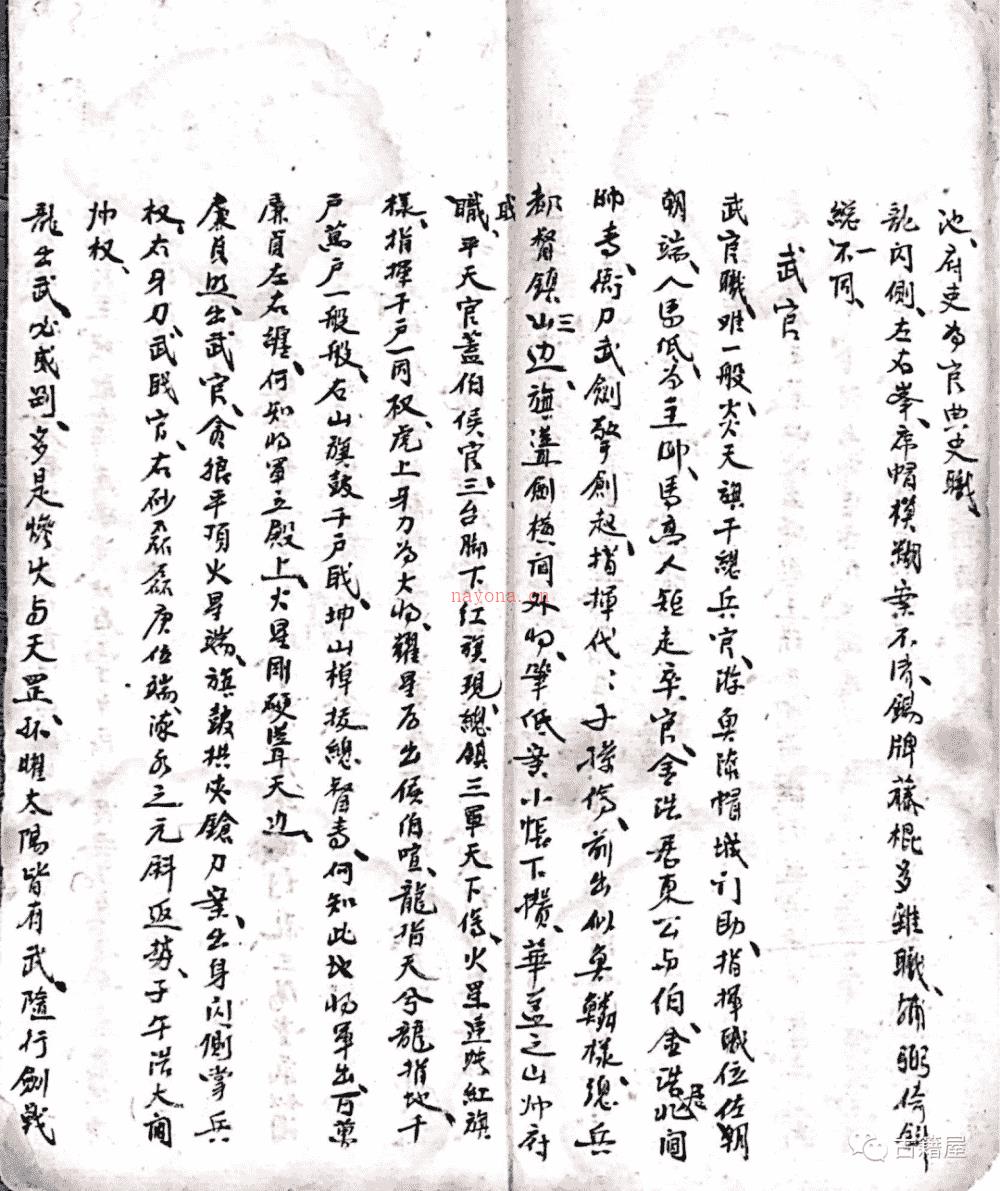 池、府吏为官典史職、
龍闪側、左右峯、席帽模糊案不済、錫牌藤棍多雜職、補弼倚斜
総不一同、
武官
武官職、难一般、炎天旗干總兵官、游魚漆帽城訂助、指揮職位佐朝
朝端、人馬低、为主帅、馬高人短走卒官、金浩居東公与伯、金浩居北阃
帅专、衝刀武劍擎劍起、指揮代々子孫傳、前出似魚鱗樣、總兵
都督鎮三山边、旗溝劍極间外将、筆低案小帳下攢、華盖之山帅府
職、平天官蓋伯侯官、三台脚下红旗現、總鎮三軍天下傳、火星連珠紅旗
樣、指揮千户一同权、虎上牙刀为大将、耀星后出侯伯喧、龍指天兮龍指地、千
户萬户一般般、右山旗鼓千户戝、坤山樟接總督专、何知此地将軍出、万萬
廉貞左右纏、何知将軍立殿上、火星剛硬聳天边、
廉貞照出武官、贪狼平頂火星端、旗鼓拱夾鎗刀案、出身闪側掌兵
权、右牙刀武戝官、右砂磊磊庚位端、涿水之元斜返势、子午浩大阃
帅权、
龍出武、必威剛、多是燥火与天罡、孤曜太陽皆有武、隨行劍戟
nayona.cn
古籍屋